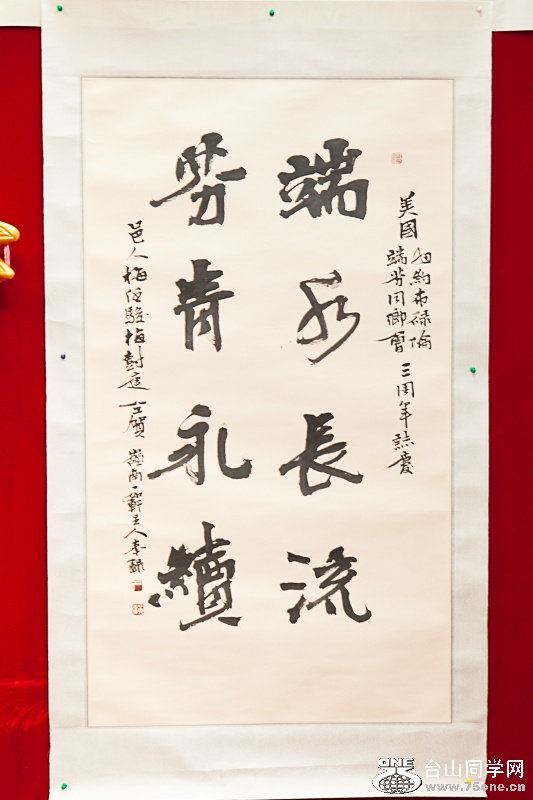 美國紐約布碌倫
端芬同鄉會 三周年誌慶
端水長流
芬青永續
邑人梅伍駿梅尌逵仝賀 嶺南一軒主人李
ONE
台山同学网
www.75one.cn